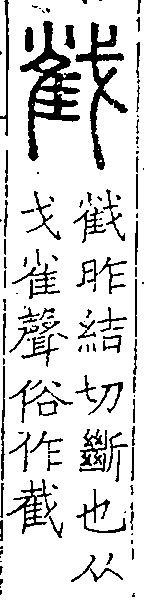 𢧵
𢧵昨結切斷也从
戈雀聲俗作截